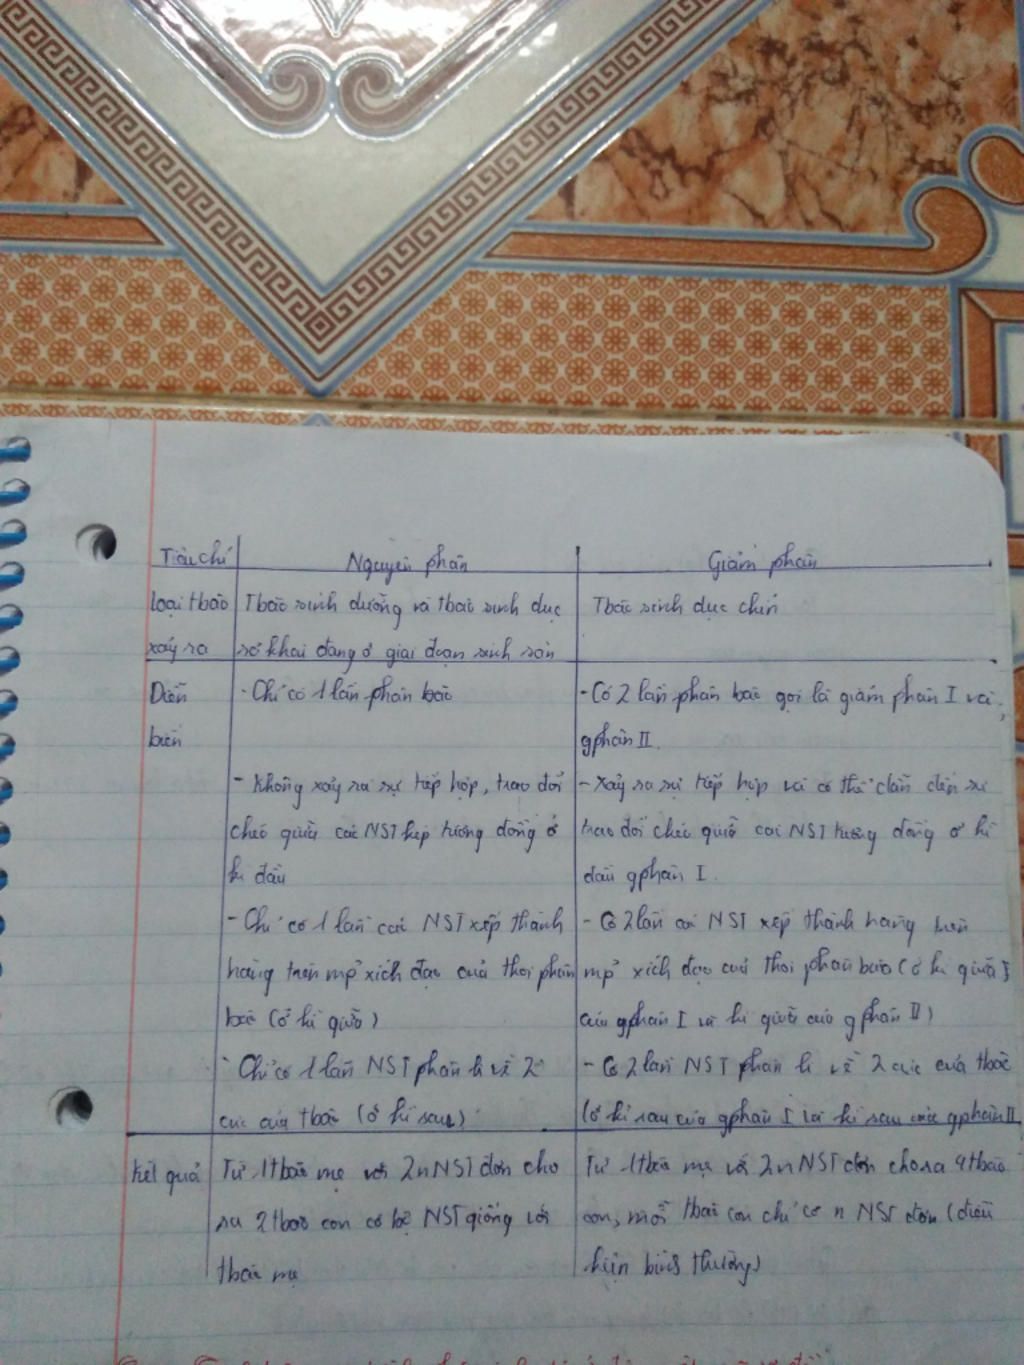 Tiêu chí Nguyên phân Giảm phân
loại tbào Tbào sinh dưỡng và tbào sinh dục Tbào sinh dục chín
xảy ra sơ khai đang ở giai đoạn sinh sản
Diễn - Chỉ có 1 lần phân bào - Có 2 lần phân bào gọi là giảm phân I và
biến gphân II.
- Không xảy ra sự tiếp hợp, trao đổi - Xảy ra sự tiếp hợp và có thể dẫn đến sự
chéo giữa các NST kép tương đồng ở trao đổi chéo giữa các NST tương đồng ở kì
kì đầu đầu gphân I.
- Chỉ có 1 lần các NST xếp thành - Có 2 lần các NST xếp thành hàng trên
hàng trên mp' xích đạo của thoi phân mp' xích đạo của thoi phân bào (ở kì giữa I
bào (ở kì giữa) của gphân I và kì giữa của gphân II)
- Chỉ có 1 lần NST phân li về 2 - Có 2 lần NST phân li về 2 cực của tbào
cực của tbào (ở kì sau) (ở kì sau của gphân I và kì sau của gphân II
Kết quả Từ 1 tbào mẹ với 2n NST đơn cho Từ 1 tbào mẹ với 2n NST đơn cho ra 4 tbào
ra 2 tbào con có bộ NST giống với con, mỗi tbào con chỉ có n NST đơn (điều
tbào mẹ kiện bình thường)